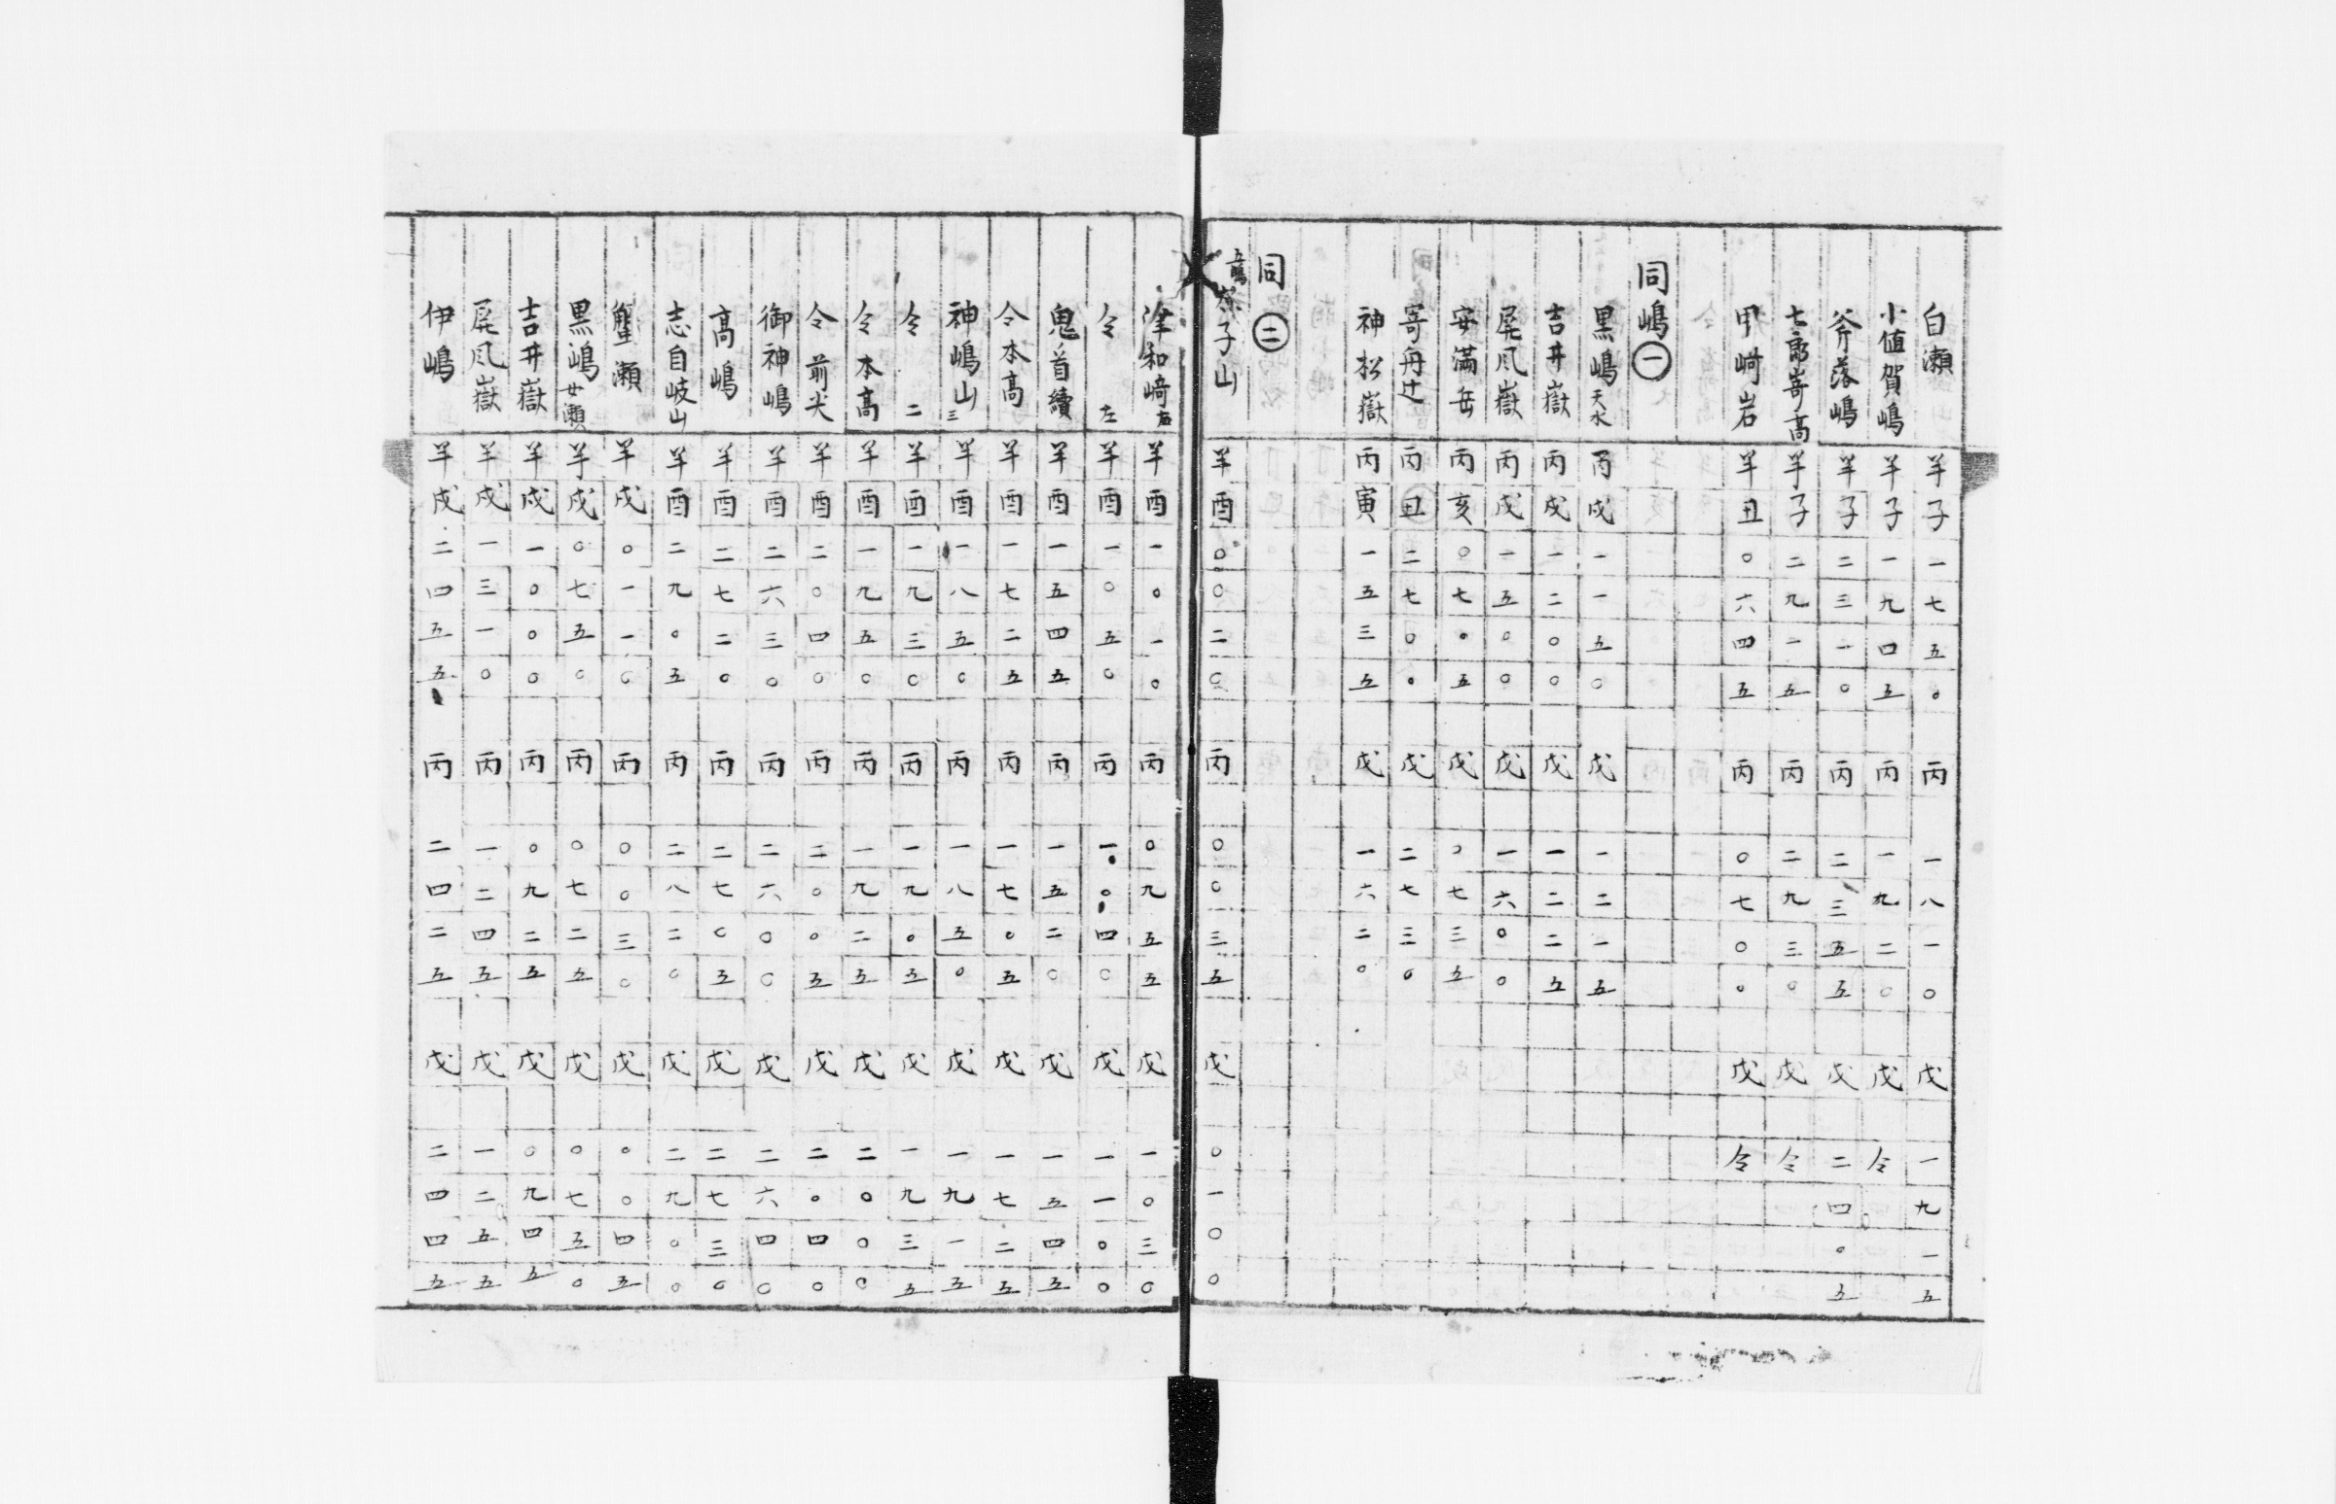 白瀬 羊子一七五〇 丙一八一〇 戊一九一五
小値賀嶋 羊子一九四五 丙一九二〇 戊仝
斧落嶋 羊子二三一〇 丙二三五五 戊二四〇五
七郎嵜高 羊子二九一五 丙二九三〇 戊仝
甲﨑岩 羊丑〇六四五 丙〇七〇〇 戊仝
同嶋㊀
黒嶋天水 丙戌一一五〇 戊一二一五
吉井嶽 丙戌一二〇〇 戊一二二五
屏风嶽 丙戌一五〇〇 戊一六〇〇
安満岳 丙亥〇七〇五 戊〇七三五
寄舟辻 丙丑二七〇〇 戊二七三〇
神松嶽 丙寅一五三五 戊一六二〇
同㊁
子山 羊酉〇〇二〇 丙〇〇三五 戊〇一〇〇
津和﨑右 羊酉一〇一〇 丙〇九五五 戊一〇三〇
仝左 羊酉一〇五〇 丙一〇四〇 戊一一〇〇
鬼首續 羊酉一五四五 丙一五二〇 戊一五四五
仝本高 羊酉一七二五 丙一七〇五 戊一七二五
神嶋山三 羊酉一八五〇 丙一八五〇 戊一九一五
仝二 羊酉一九三〇 丙一九〇五 戊一九三五
仝本高 羊酉一九五〇 丙一九二五 戊二〇〇〇
仝前尖 羊酉二〇四〇 丙二〇〇五 戊二〇四〇
御神嶋 羊酉二六三〇 丙二六〇〇 戊二六四〇
高嶋 羊酉二七二〇 丙二七〇五 戊二七三〇
志自岐山 羊酉二九〇五 丙二八二〇 戊二九〇〇
蟹瀬 羊戌〇一一〇 丙〇〇三〇 戊〇〇四五
黒嶋女瀬 羊戌〇七五〇 丙〇七二五 戊〇七五〇
吉井嶽 羊戌一〇〇〇 丙〇九二五 戊〇九四五
屏风嶽 羊戌一三一〇 丙一二四五 戊一二五五
伊嶋 羊戌二四五五 丙二四二五 戊二四四五